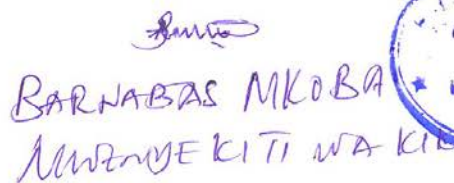 BARNABAS MKOBA
MWENYEKITI WA KIJ